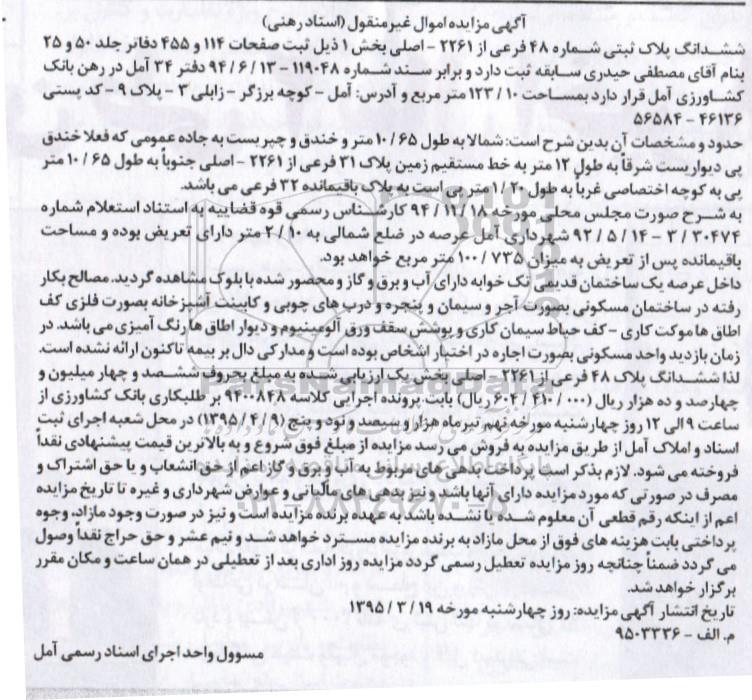 آگهی مزایده اموال غیر منقول (اسناد رهنی)
ششدانگ پلاک ثبتی شماره ۴۸ فرعی از ۲۲۶۱ - اصلی بخش ۱ ذیل ثبت صفحات ۱۱۴ و ۴۵۵ دفاتر جلد ۵۰ و ۲۵
بنام آقای مصطفی حیدری سابقه ثبت دارد و برابر سند شماره ۱۱۹۰۴۸ - ۱۳ / ۶ / ۹۴ دفتر ۳۴ آمل در رهن بانک
کشاورزی آمل قرار دارد بمساحت ۱۰ / ۱۲۳ متر مربع و آدرس: آمل - کوچه برزگر - زابلی ۳ - پلاک ۹ - کد پستی
۴۶۱۳۶ - ۵۶۵۸۴
حدود و مشخصات آن بدین شرح است: شمالا به طول ۶۵ / ۱۰ متر و خندق و چپر بست به جاده عمومی که فعلا خندق
پی دیواریست شرقاً به طول ۱۲ متر به خط مستقیم زمین پلاک ۳۱ فرعی از ۲۲۶۱ - اصلی جنوباً به طول ۶۵ / ۱۰ متر
پی به کوچه اختصاصی غرباً به طول ۲۰ / ۱ متر پی است به پلاک باقیمانده ۳۲ فرعی می باشد.
به شرح صورت مجلس محلی مورخه ۱۸ / ۱۲ / ۹۴ کارشناس رسمی قوه قضاییه به استناد استعلام شماره
۳۰۴۷۴ / ۳ - ۱۴ / ۵ / ۹۲ شهرداری آمل عرصه در ضلع شمالی به ۱۰ / ۲ متر دارای تعریض بوده و مساحت
باقیمانده پس از تعریض به میزان ۷۳۵ / ۱۰۰ متر مربع خواهد بود.
داخل عرصه یک ساختمان قدیمی تک خوابه دارای آب و برق و گاز و محصور شده با بلوک مشاهده گردید. مصالح بکار
رفته در ساختمان مسکونی بصورت آجر و سیمان و پنجره و درب های چوبی و کابینت آشپزخانه بصورت فلزی کف
اطاق ها موکت کاری - کف حیاط سیمان کاری و پوشش سقف ورق آلومینیوم و دیوار اطاق ها رنگ آمیزی می باشد. در
زمان بازدید واحد مسکونی بصورت اجاره در اختیار اشخاص بوده است و مدارکی دال بر بیمه تاکنون ارائه نشده است.
لذا ششدانگ پلاک ۴۸ فرعی از ۲۲۶۱ - اصلی بخش یک ارزیابی شده به مبلغ بحروف ششصد و چهار میلیون و
چهارصد و ده هزار ریال (۰۰۰ / ۴۱۰ / ۶۰۴ ریال) بابت پرونده اجرایی کلاسه ۹۴۰۰۸۴۸ بر طلبکاری بانک کشاورزی از
ساعت ۹ الی ۱۲ روز چهارشنبه مورخه نهم تیر ماه هزار و سیصد و نود و پنج (۹ / ۴ / ۱۳۹۵) در محل شعبه اجرای ثبت
اسناد و املاک آمل از طریق مزایده به فروش می رسد مزایده از مبلغ فوق شروع و به بالاترین قیمت پیشنهادی نقداً
فروخته می شود. لازم بذکر است پرداخت بدهی های مربوط به آب و برق و گاز اعم از حق انشعاب و یا حق اشتراک و
مصرف در صورتی که مورد مزایده دارای آنها باشد و نیز بدهی های مالیاتی و عوارض شهرداری و غیره تا تاریخ مزایده
اعم از اینکه رقم قطعی آن معلوم شده یا نشده باشد به عهده برنده مزایده است و نیز در صورت وجود مازاد، وجوه
پرداختی بابت هزینه های فوق از محل مازاد به برنده مزایده مسترد خواهد شد و نیم عشر و حق حراج نقداً وصول
می گردد ضمناً چنانچه روز مزایده تعطیل رسمی گردد مزایده روز اداری بعد از تعطیلی در همان ساعت و مکان مقرر
برگزار خواهد شد.
تاریخ انتشار آگهی مزایده: روز چهارشنبه مورخه ۱۹ / ۳ / ۱۳۹۵
م. الف - ۹۵۰۳۳۳۶
مسوول واحد اجرای اسناد رسمی آمل
ParsNamadData